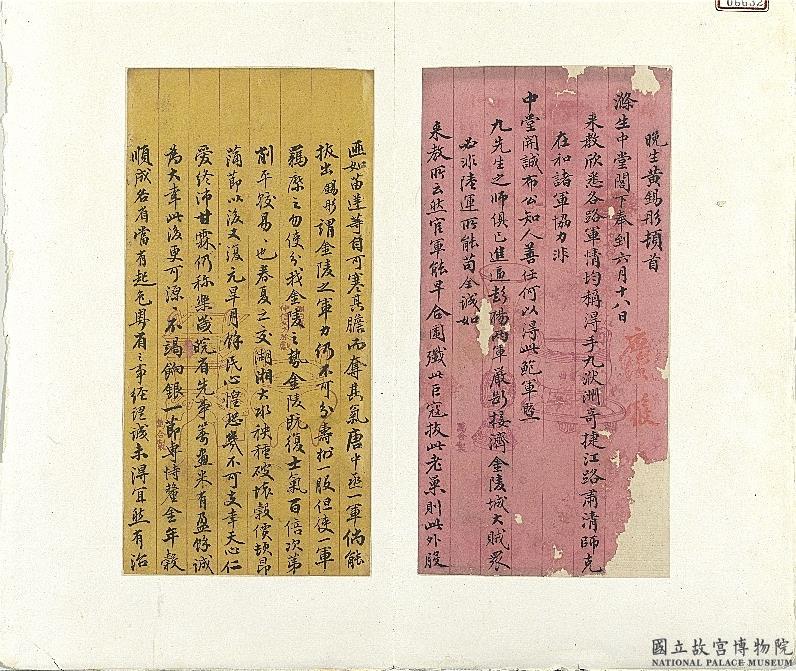 晚生黃錫彤頓首
滌生中堂閣下奉到六月十八日
來教欣悉各路軍情均稱得手九洑洲奇捷江路肅清師克
在和諸軍協力非
中堂開誠布公知人善任何以得此鮑軍暨
九先生之師俱已進逼彭楊兩軍嚴斷接濟金陵城大賊眾
必非陸運所能苟全誠如
來教所云然官軍能早合圍殲此巨寇拔此老巢則此外股
匪如苗逆等自可寒其膽而奪其氣唐中丞一軍倘能
拔出錫彤謂金陵之軍力仍不可分壽州一股但使一軍
羈縻之勿使分我金陵之勢金陵既復士氣百倍次第
削平較易易也春夏之交湖湘大水秧種破壞穀價頓昂
蒲節以後又復亢旱月餘民心惶恐幾不可支幸天心仁
愛終沛甘霖仍稱樂歲皖省先事籌畫米有盈餘誠
為大幸此後更可源源不竭餉銀一節專恃釐金年穀
順成各省當有起色粵省之事經理誠未得宜然有治
06632
國立故宮博物院
NATIONAL PALACE MUSEUM